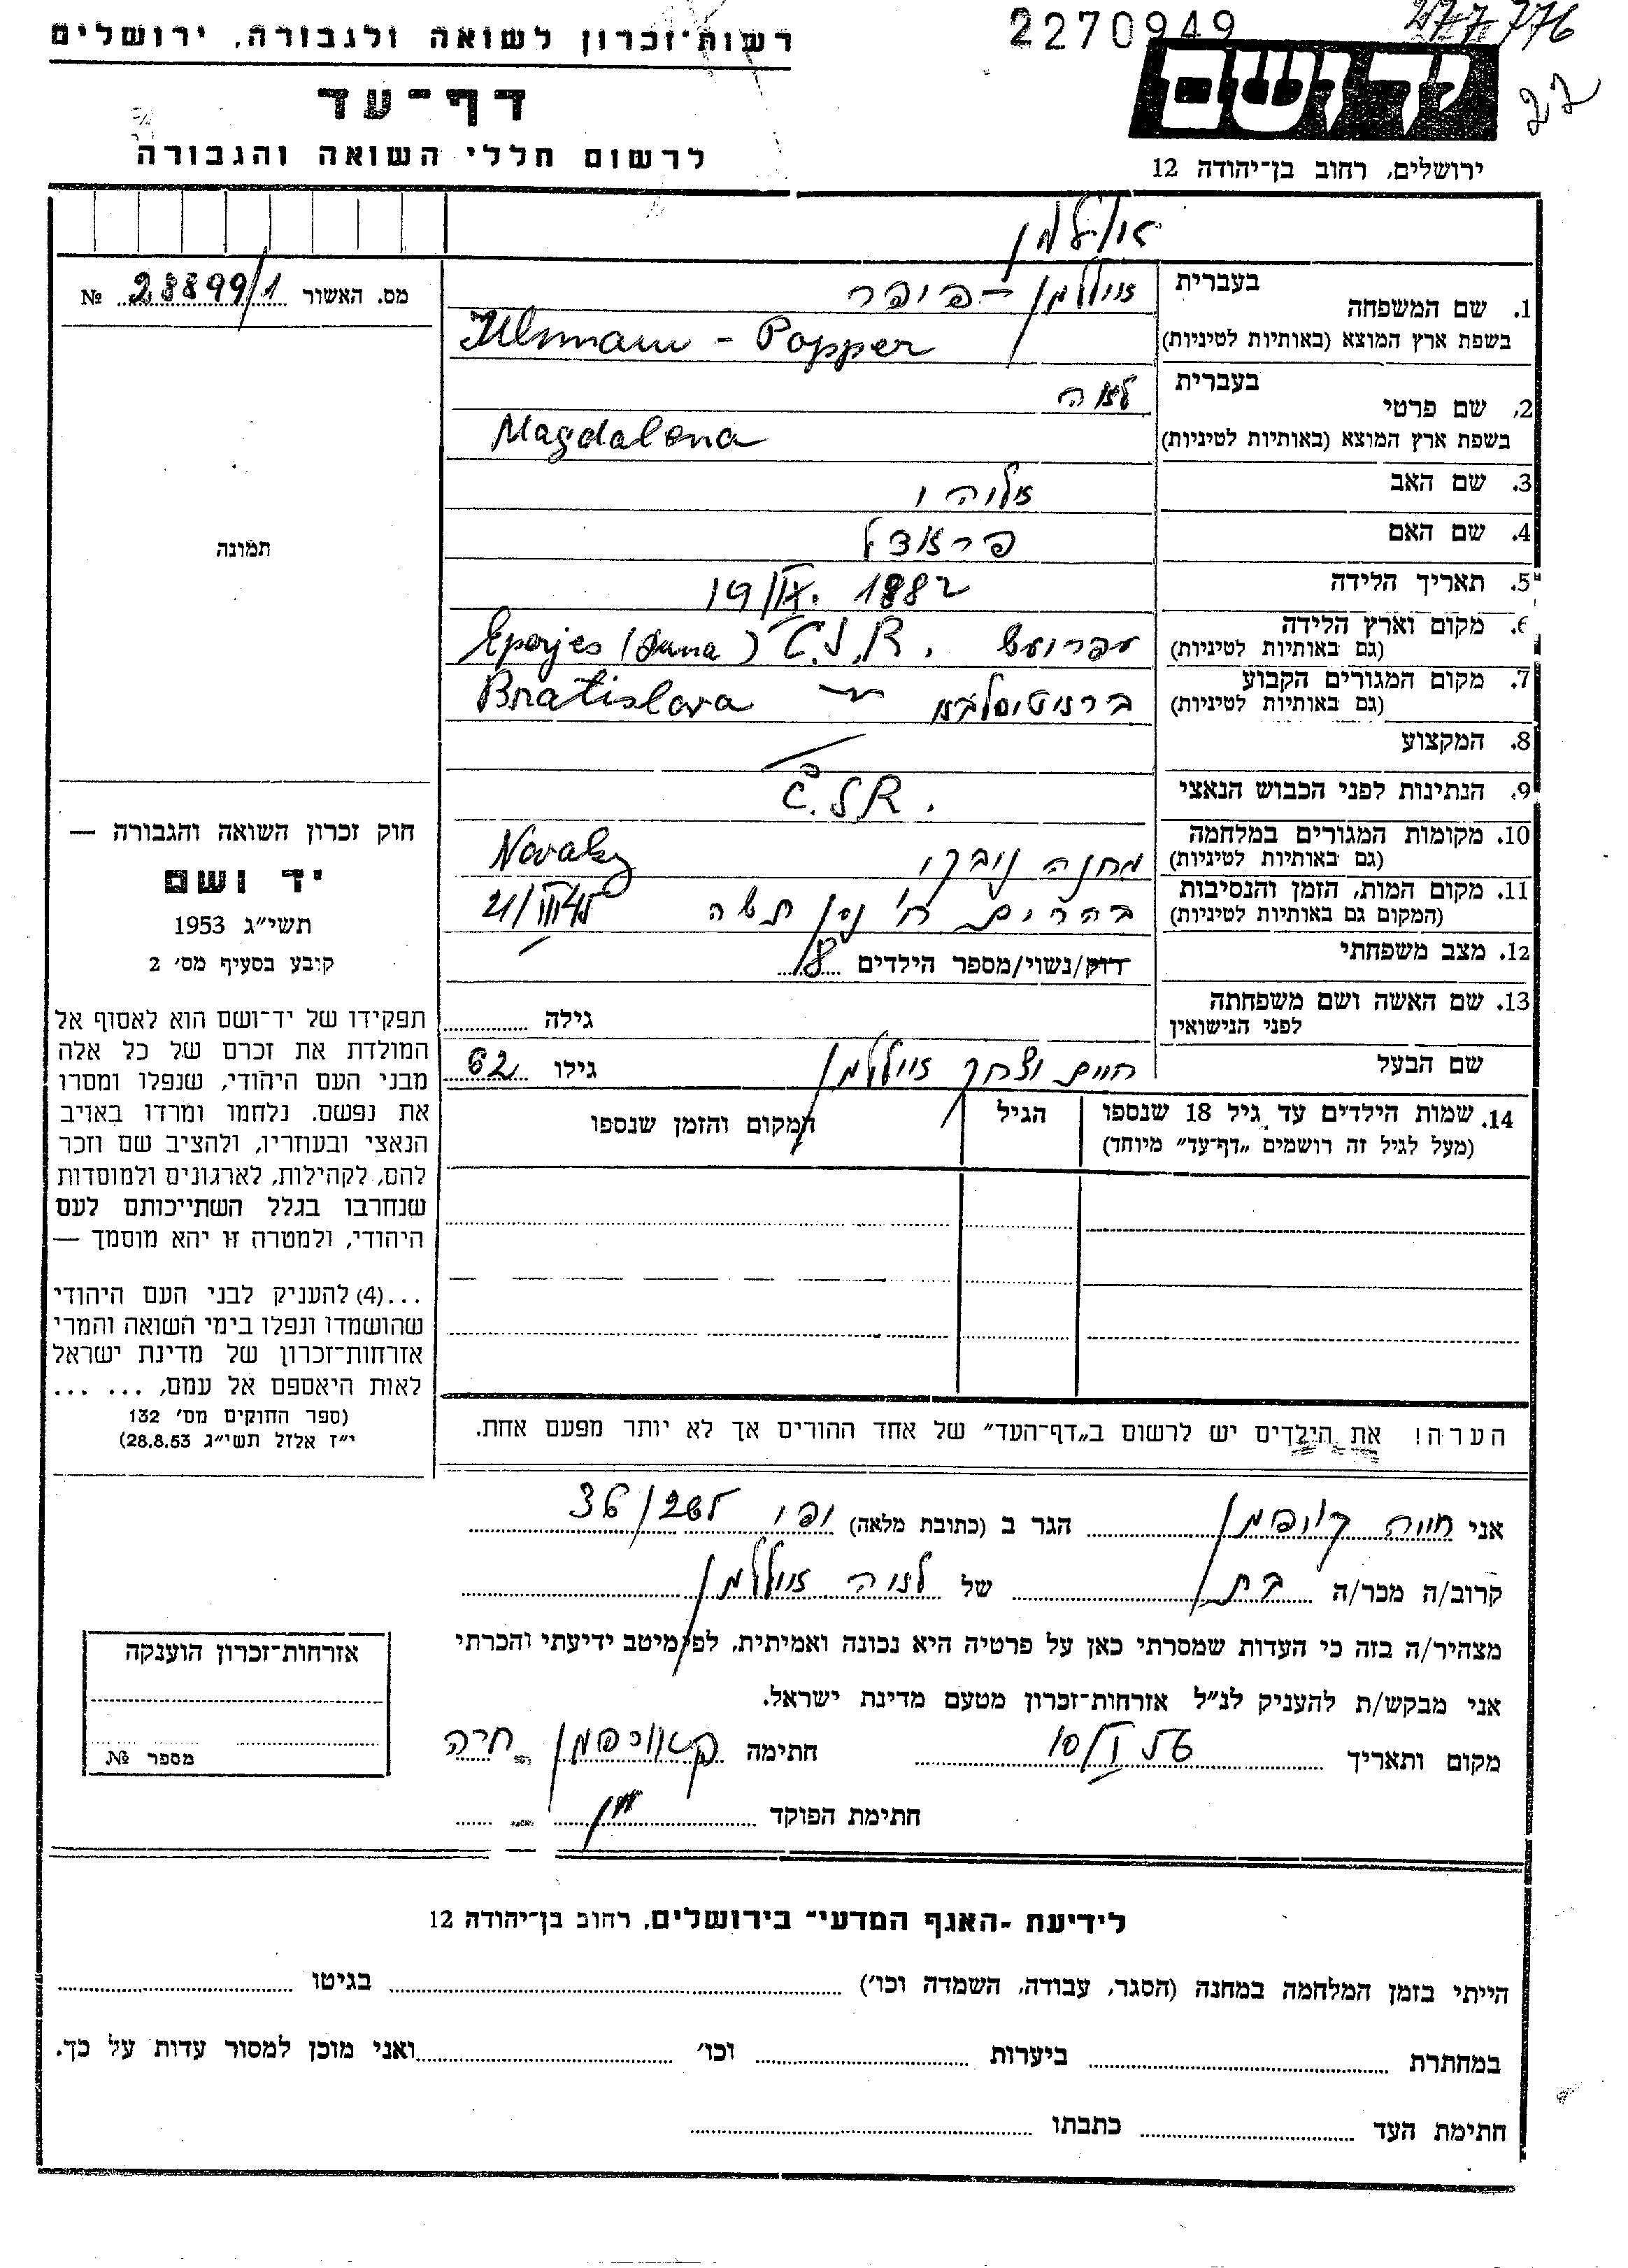 2270949
277776
רשות־זכרון לשואה ולגבורה, ירושלים
דף־עד
לרשום חללי השואה והגבורה
יד ושם
ירושלים, רחוב בן־יהודה 12
אולמן
מס. האשור 28899/1 №
1. שם המשפחה
בעברית אוללמן - פופר
בשפת ארץ המוצא (באותיות לטיניות) Ullmann - Popper
2. שם פרטי
בעברית לאה
בשפת ארץ המוצא (באותיות לטיניות) Magdalena
3. שם האב אליהו
4. שם האם פראדל
5. תאריך הלידה 19/IX. 1882
6. מקום וארץ הלידה
(גם באותיות לטיניות) Eperjes ( ) Č.S.R.
7. מקום המגורים הקבוע
(גם באותיות לטיניות) ברטיסלבא Bratislava
8. המקצוע
9. הנתינות לפני הכבוש הנאצי Č.S.R.
10. מקומות המגורים במלחמה
(גם באותיות לטיניות) מחנה נובקי Novaky
11. מקום המות, הזמן והנסיבות
(המקום גם באותיות לטיניות) בהרים ח' ניסן תשה 21/III 45
12. מצב משפחתי
רווק/נשוי/מספר הילדים 8
13. שם האשה ושם משפחתה
לפני הנישואין
גילה
שם הבעל חיים יצחק אוללמן גילו 62
14. שמות הילדים עד גיל 18 שנספו
(מעל לגיל זה רושמים „דף־עד” מיוחד)
הגיל
המקום והזמן שנספו
תמונה
חוק זכרון השואה והגבורה —
יד ושם
תשי״ג 1953
קובע בסעיף מס׳ 2
תפקידו של יד־ושם הוא לאסוף אל
המולדת את זכרם של כל אלה
מבני העם היהודי, שנפלו ומסרו
את נפשם, נלחמו ומרדו באויב
הנאצי ובעוזריו, ולהציב שם וזכר
להם, לקהילות, לארגונים ולמוסדות
שנחרבו בגלל השתייכותם לעם
היהודי, ולמטרה זו יהא מוסמך —
...(4) להעניק לבני העם היהודי
שהושמדו ונפלו בימי השואה והמרי
אזרחות־זכרון של מדינת ישראל
לאות היאספם אל עמם, ... ...
(ספר החוקים מס׳ 132
י״ז אלול תשי״ג 28.8.53)
הערה! את הילדים יש לרשום ב„דף־העד” של אחד ההורים אך לא יותר מפעם אחת.
אני חיה קויפמן הגר ב (כתובת מלאה) יפו 36/
קרוב/ה מכר/ה בת של לאה אוללמן
מצהיר/ה בזה כי העדות שמסרתי כאן על פרטיה היא נכונה ואמיתית, לפי מיטב ידיעתי והכרתי
אני מבקש/ת להעניק לנ״ל אזרחות־זכרון מטעם מדינת ישראל.
מקום ותאריך 10/I 56 חתימה קאופמן חיה
חתימת הפוקד
אזרחות־זכרון הוענקה
מספר №
לידיעת „האגף המדעי” בירושלים, רחוב בן־יהודה 12
הייתי בזמן המלחמה במחנה (הסגר, עבודה, השמדה וכו׳) בגיטו
במחתרת ביערות וכו׳ ואני מוכן למסור עדות על כך.
חתימת העד כתבתו